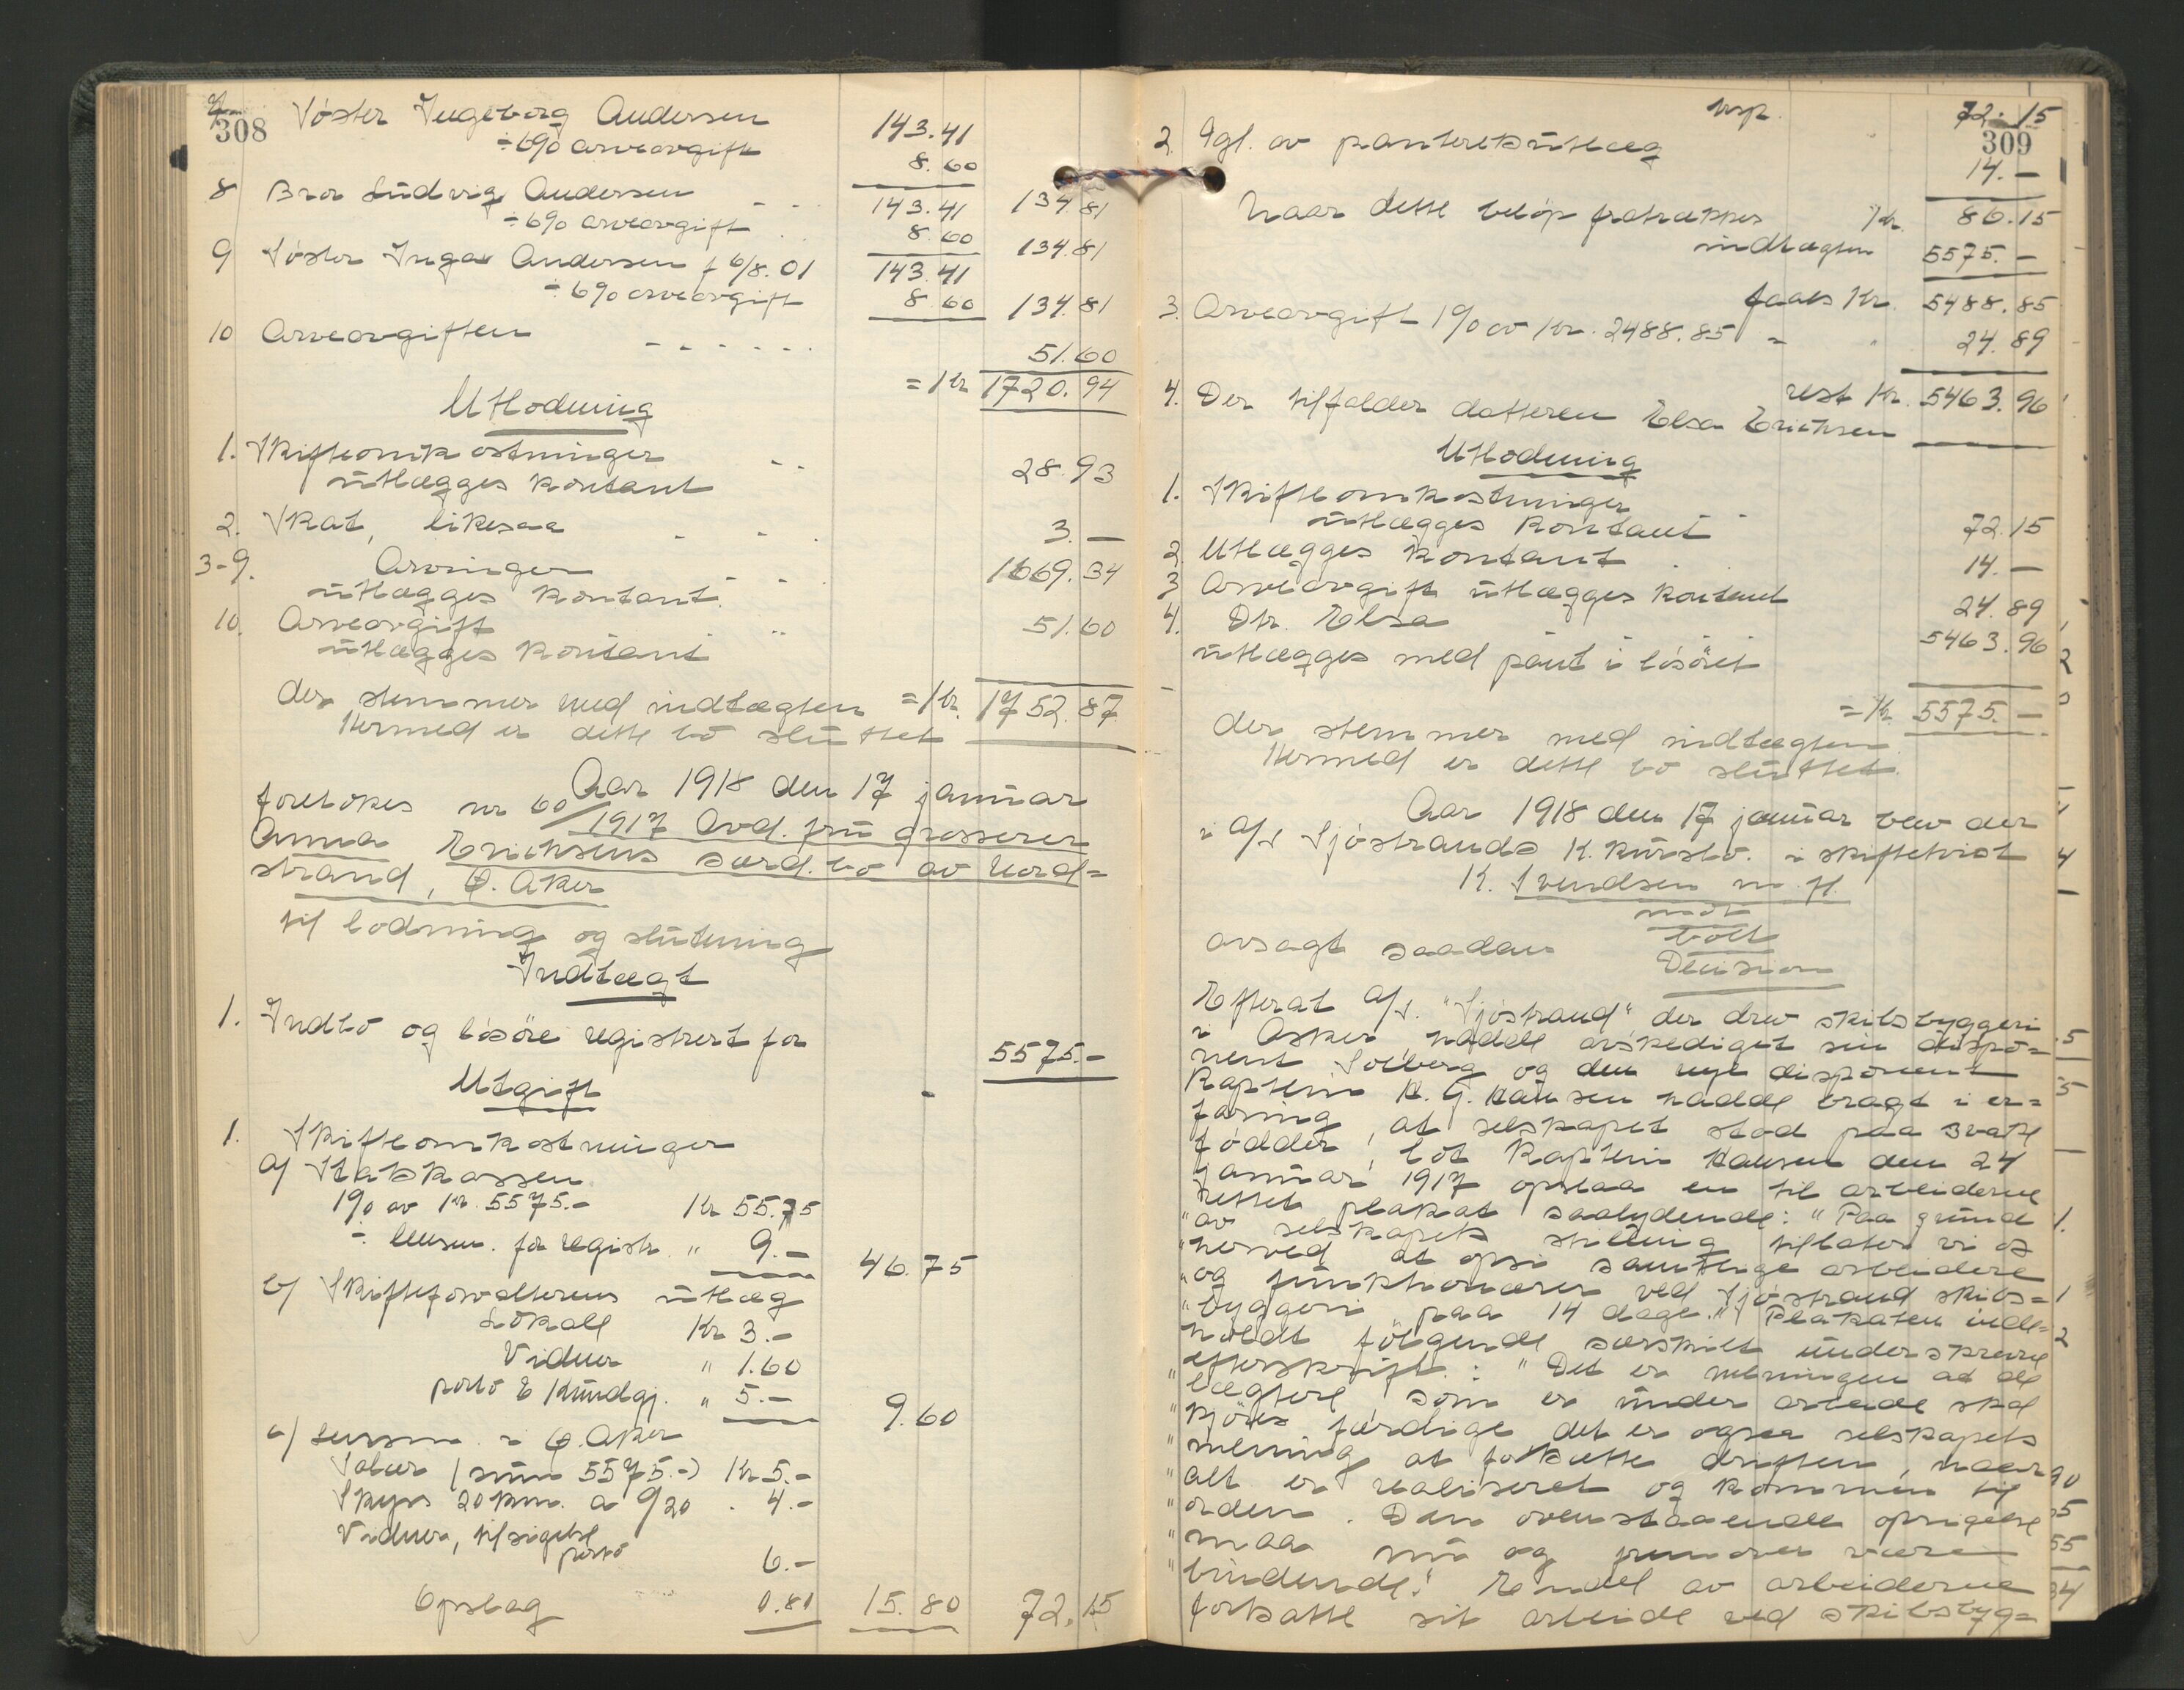 308
7 Søster Ingeborg Andersen 143.41
÷ 6% arveavgift 8.60 134.81
8 Bror Ludvig Andersen 143.41
÷ 6% arveavgift 8.60 134.81
9 Søster Inga Andersen f 6/8.01 143.41
÷ 6% arveavgift 8.60 134.81
10 Arveavgiften 51.60
= Kr 1720.94
Utlodning
1. Skifteomkostninger
utlægges kontant 28.93
2. Skat, likesaa 3.—
3-9. Arvinger
utlægges kontant. 1669.34
10. Arveavgift
utlægges kontant 51.60
der stemmer med indtægten = Kr. 1752.87
Hermed er dette bo sluttet
Aar 1918 den 17 januar
foretokes nr 60/1917 Avd. fru grosserer
Anna Erichsens særd. bo av Nord=
strand, Ø. Aker
til lodning og slutning
Indtægt
1. Indbo og løsøre registrert for 5575.-
Utgift
1. Skifteomkostninger
a) Statskassen
1% av Kr. 5575.- Kr 55.75
÷ lensm. for registr. " 9.- 46.75
b) Skifteforvalterens utlæg
Lokale Kr 3.-
Vidner " 1.60
porto & Kundgj. " 5.- 9.60
c) Lensm. i Ø. Aker
Salær (sum 5575.-) Kr 5.-
Skyss 20 km. a 0/20 . 4.-
Vidner, tilsigelse
porto 6.-
Opslag 0.80 15.80 72.15
309
trsp. 72.15
2. Tgl. av panteretsutlæg 14.—
Naar dette beløp fratrækkes Kr. 86.15
indtægten 5575.—
faaes Kr. 5488.85
3. Arveavgift 1% av Kr. 2488.85 " 24.89
rest Kr. 5463.96
4. Der tilfalder datteren Elsa Erichsen
Utlodning
1. Skifteomkostninger
utlægges kontant 72.15
2. Utlægges kontant 14.—
3 Arveavgift utlægges kontant 24.89
4. Dtr. Elsa 5463.96
utlægges med pant i løsøret
= Kr 5575.—
der stemmer med indtægten.
Hermed er dette bo sluttet.
Aar 1918 den 17 januar blev der
i A/S Sjøstrands K. kursbo. i skiftetvist
K. Svendsen m. fl.
mot
boet
avsagt saadan Decision
Efterat A/S. "Sjøstrand" der drev skibsbyggeri
i Asker hadde avskediget sin dispo=
nent Solberg og den nye disponent
Kaptein K. G. Hansen hadde bragt i er=
faring, at selskapet stod paa svake
fødder, lot Kaptein Hansen den 24
januar 1917 opslaa en til arbeiderne
rettet plakat saalydende: "Paa grund
"av selskapets stilling tillater vi os
"herved at opsi samtlige arbeidere
"og funktionærer ved Sjøstrand skibs=
"byggeri paa 14 dage." Plakaten inde=
holdt følgende særskilt underskrevne
efterskrift: "Det er meningen at de
"lægtere som er under arbeide skal
"kjøres færdige det er ogsaa selskapets
"mening at fortsætte driften, naar
"alt er realiseret og kommen til
"orden. Den ovenstaaende opsigelse
"maa nu og fremover være
"bindende." Endel av arbeiderne
fortsatte sit arbeide ved skibsbyg=